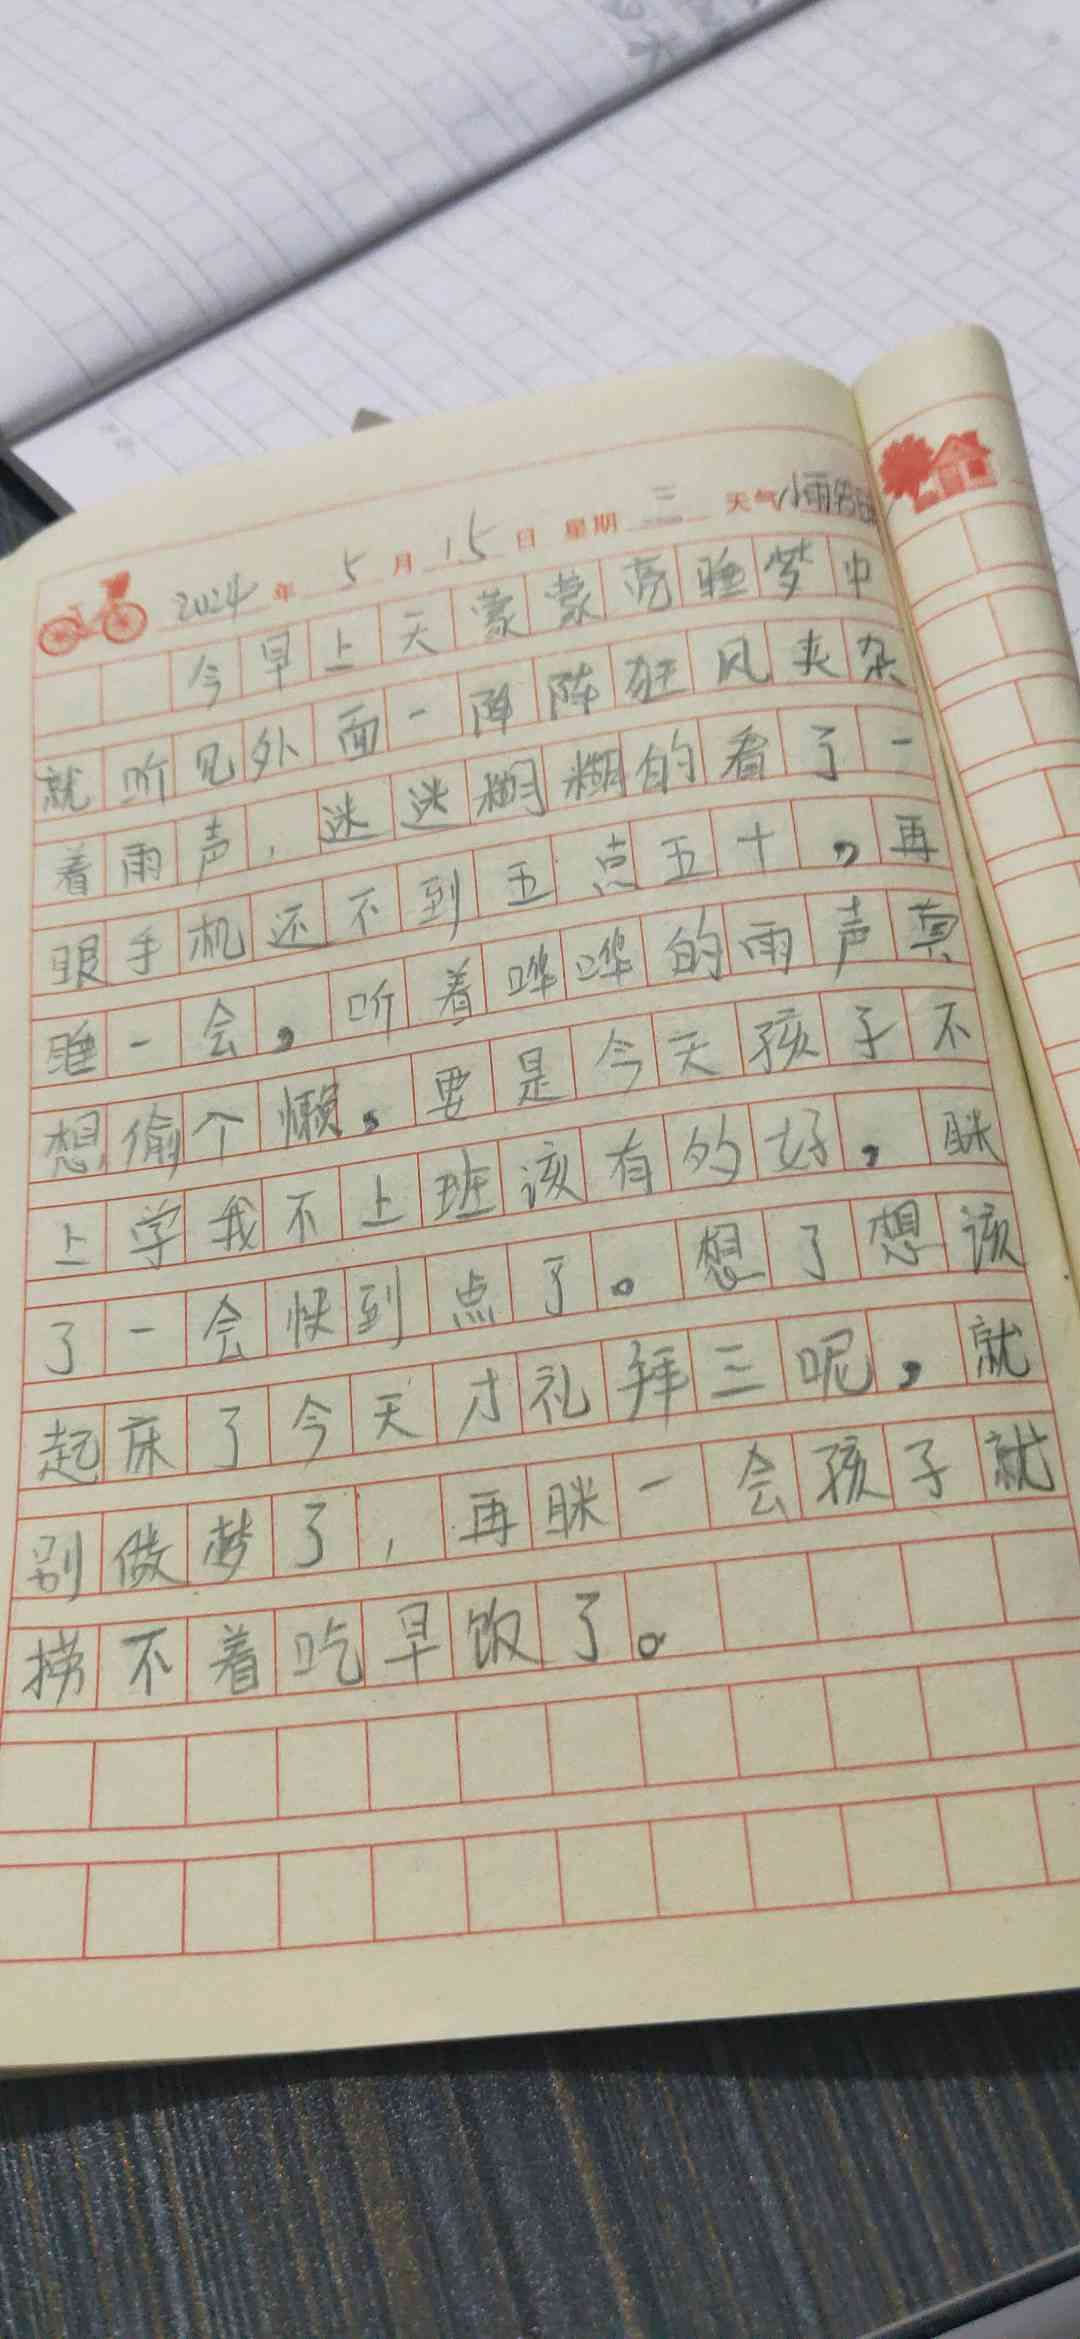 2024年5月15日 星期三 天气小雨转
今早上天蒙蒙亮睡梦中
就听见外面一阵阵狂风夹杂
着雨声，迷迷糊糊的看了一
眼手机还不到五点五十，再
睡一会，听着哗哗的雨声真
想偷个懒，要是今天孩子不
上学我不上班该有的好，眯
了一会快到点了。想了想该
起床了今天才礼拜三呢，就
别做梦了，再眯一会孩子就
捞不着吃早饭了。